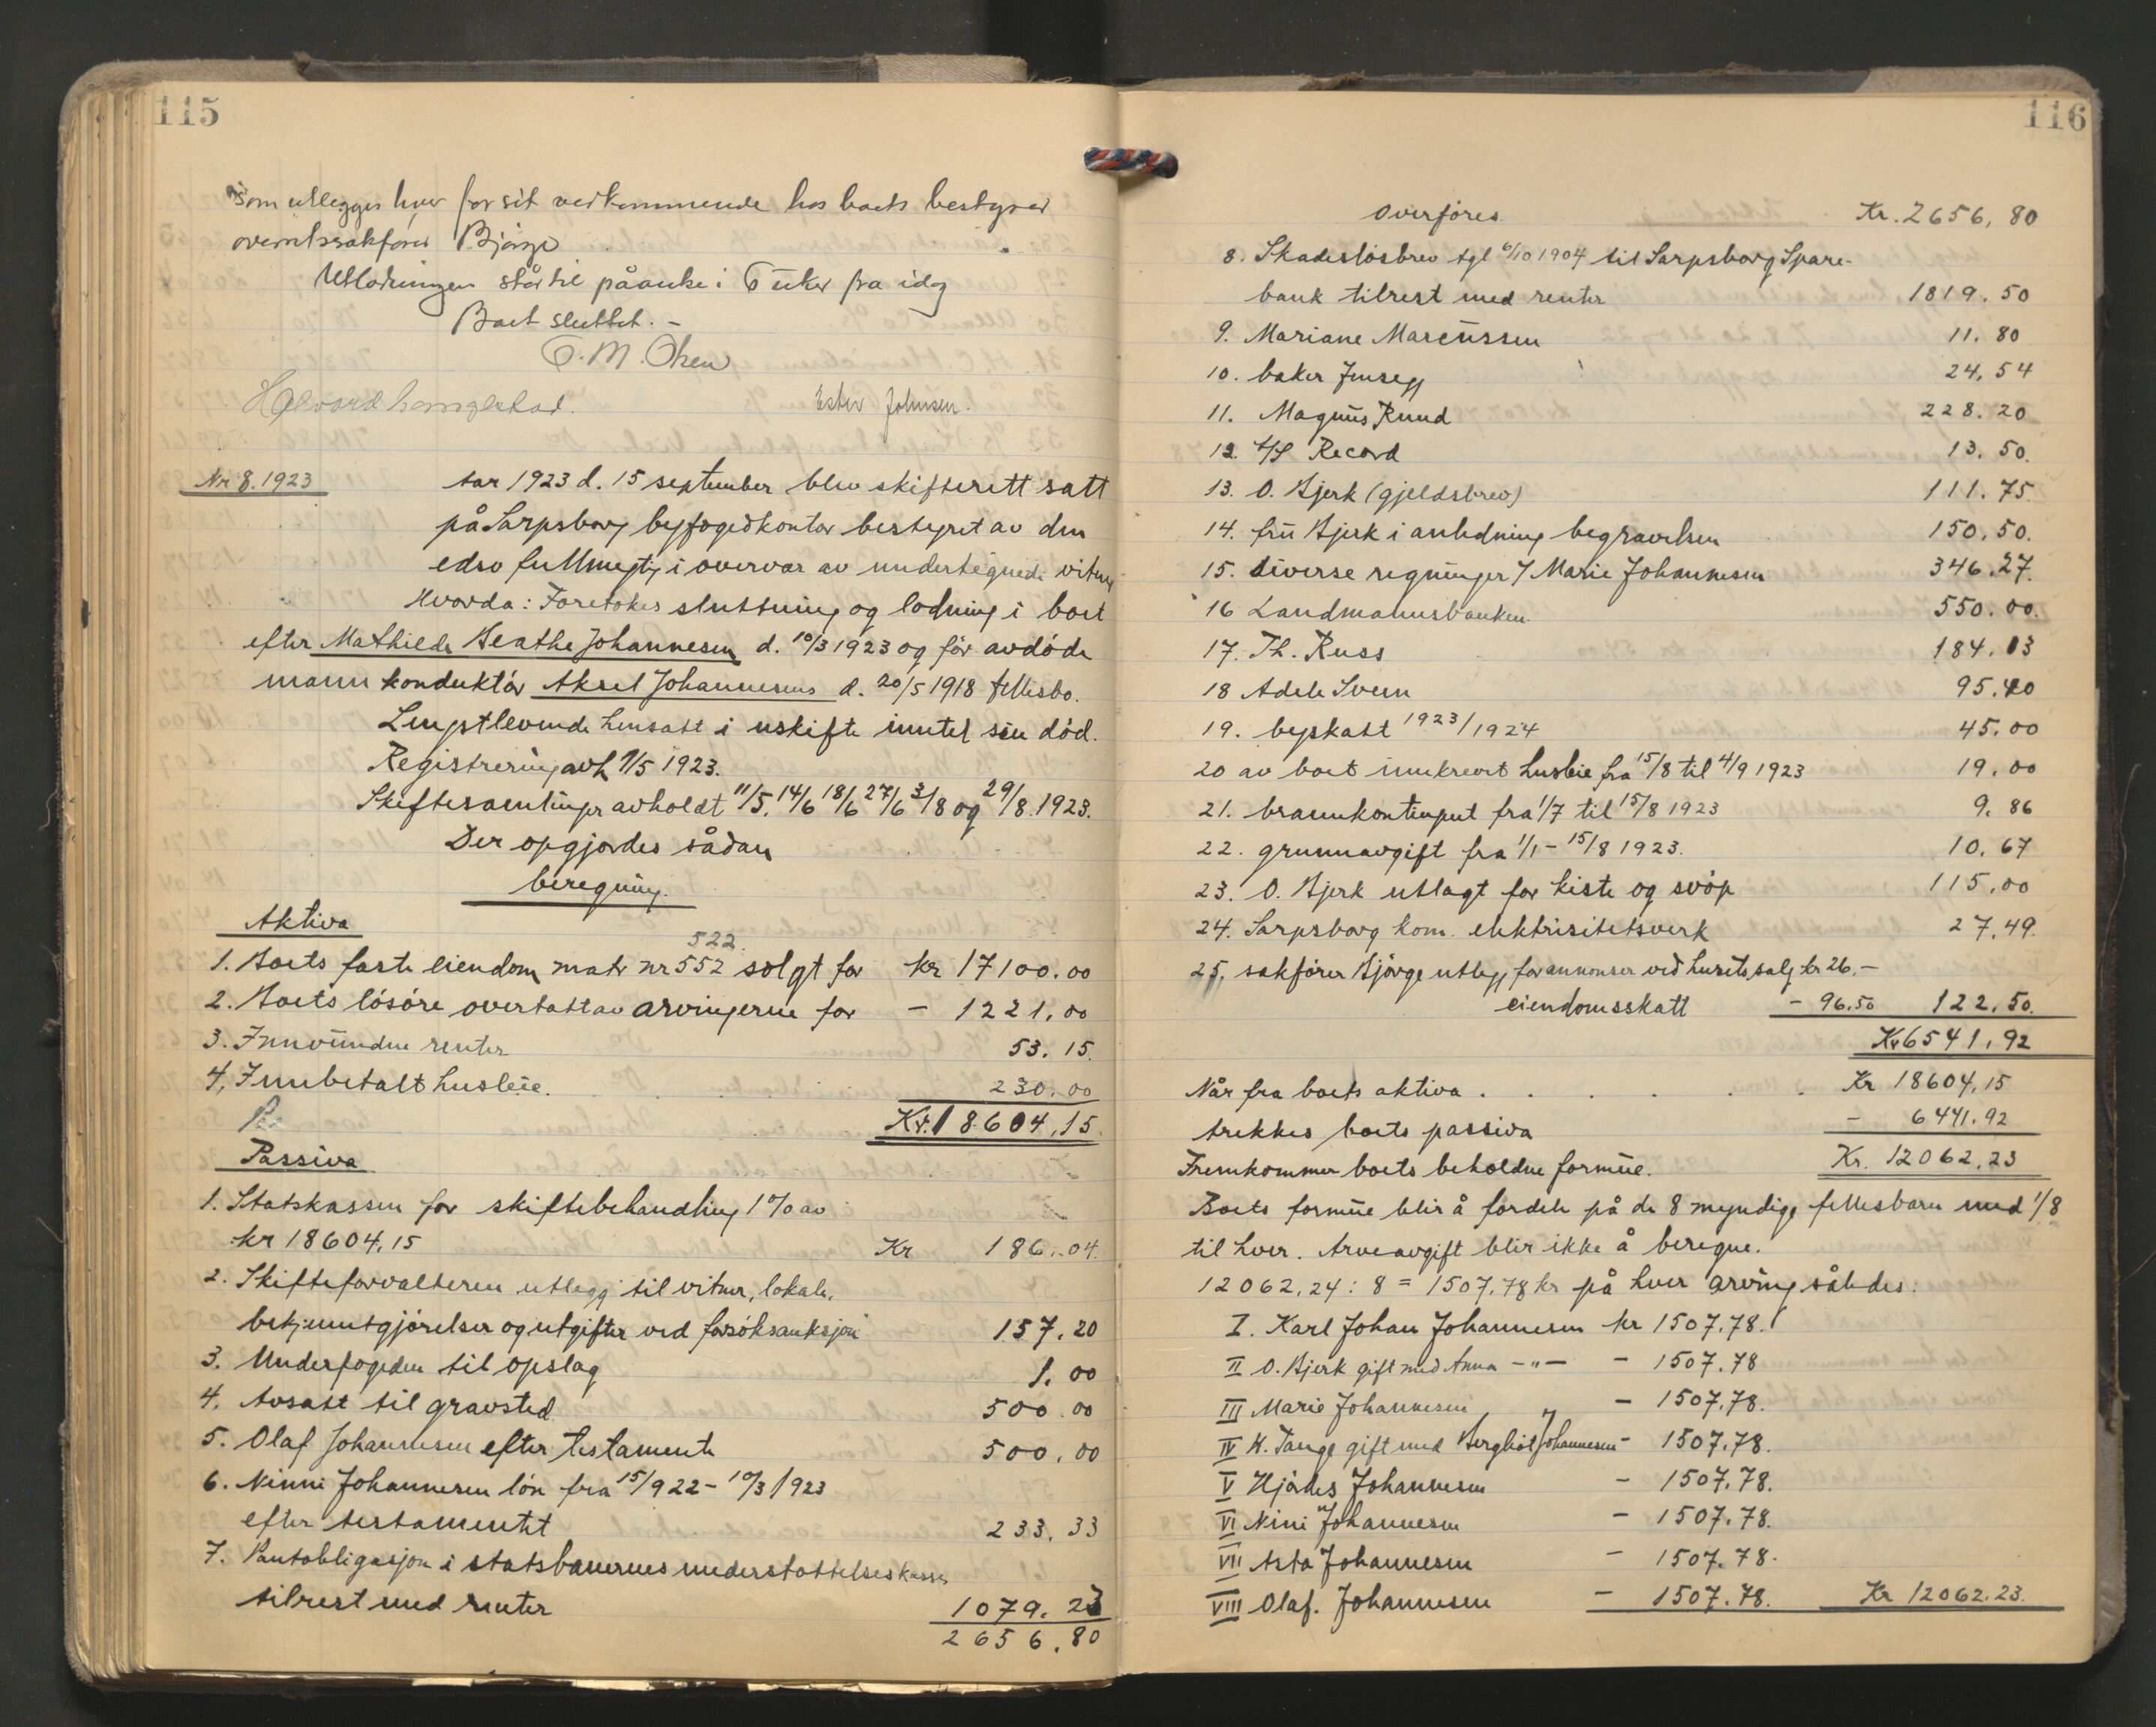 115
som utlegges hver for sit vedkommende hos boets bestyrer
overretssakfører Bjørge
Utlodningen står til påanke i 6 uker fra idag
Boet sluttet. -
O. M. Olsen
Halvord Ester Johnsen.
Nr 8. 1923 Aar 1923 d. 15 september blev skifterett satt
på Sarpsborg byfogedkontor bestyret av den
edsv fullmegtig i overvær av undertegnede vitner
Hvorda: Foretokes sluttning og lodning i boet
efter Mathilde Beathe Johannesen d. 10/3 1923 og før avdøde
mann konduktør Aksel Johannesens d. 20/5 1918 fellesbo.
Lengstlevende hensatt i uskifte inntil sin død.
Registrering avh 7/5 1923.
Skiftesamlinger avholdt 11/5. 14/6 18/6 27/6 3/8 og 29/8. 1923.
Der opgjordes sådan
beregning.
Aktiva
522.
1. Boets faste eiendom matr nr 552 solgt for kr 17100.00
2. Boets løsøre overtatt av arvingerne for - 1221.00
3. Innvundne renter 53. 15.
4. Innbetalt husleie. 230.00
Kr. 18604,15.
Passiva
1. Statskassen for skiftebehandling 1% av
kr 18604,15 Kr 186.04.
2. Skifteforvalteren utlegg til vitner, lokale,
bekjenntgjørelser og utgifter ved forsøksauksjon 157.20
3. Underfogeden til opslag 1.00
4. Avsatt til gravsted 500.00
5. Olaf Johannesen efter testamente 500.00
6. Ninni Johannesen løn fra 15/9 22 - 10/3 1923
efter testamentet 233.33
7. Pantobligasjon i statsbanernes understøttelseskasse
tilrest med renter 1079.23
2656.80
116
Overføres Kr. 2656,80
8. Skadesløsbrev tgl 6/10 1904 til Sarpsborg Spare-
bank tilrest med renter 1819.50
9. Mariane Marcussen 11.80
10. baker Jensegg 24,54
11. Magnus Ruud 228.20
12. A/S Record 13.50.
13. O. Bjerk (gjeldsbrev) 111.75.
14. fru Bjerk i anledning begravelsen 150.50.
15. diverse regninger / Marie Johannesen 346.27.
16 Landmannsbanken. 550.00.
17. Th. Russ 184.03
18 Adele Sveen 95.40
19. byskatt 1923/1924 45.00
20 av boet innkrevet husleie fra 15/8 til 4/9 1923 19.00
21. brannkontingent fra 1/7 til 15/8 1923 9.86
22. grunnavgift fra 1/1 - 15/8 1923. 10.67
23. O. Bjerk utlagt for kiste og svøp 115,00
24. Sarpsborg kom. elektrisitetsverk 27,49.
25, sakfører Bjørge utlegg for annonser ved husets salg kr 26.-
eiendomsskatt - 96.50 122.50.
Kr 6541.92
Når fra boets aktiva . . . . . . Kr 18604,15
trekkes boets passiva - 6441.92
Fremkommer boets beholdne formue. Kr. 12062,23
Boets formue blir å fordele på de 8 myndige fellesbarn med 1/8
til hver. Arveavgift blir ikke å beregne.
12062,24 : 8 = 1507,78 kr på hver arving således:
I. Karl Johan Johannesen kr 1507.78.
II O. Bjerk gift med Anna -"- - 1507.78
III Marie Johannesen - 1507.78.
IV K. Tange gift med Bergliot Johannesen - 1507.78.
V Hjørdes Johannesen - 1507.78.
VI Nini Johannesen - 1507.78.
VII Asta Johannesen - 1507.78.
VIII Olaf. Johannesen - 1507.78. Kr 12062.23.